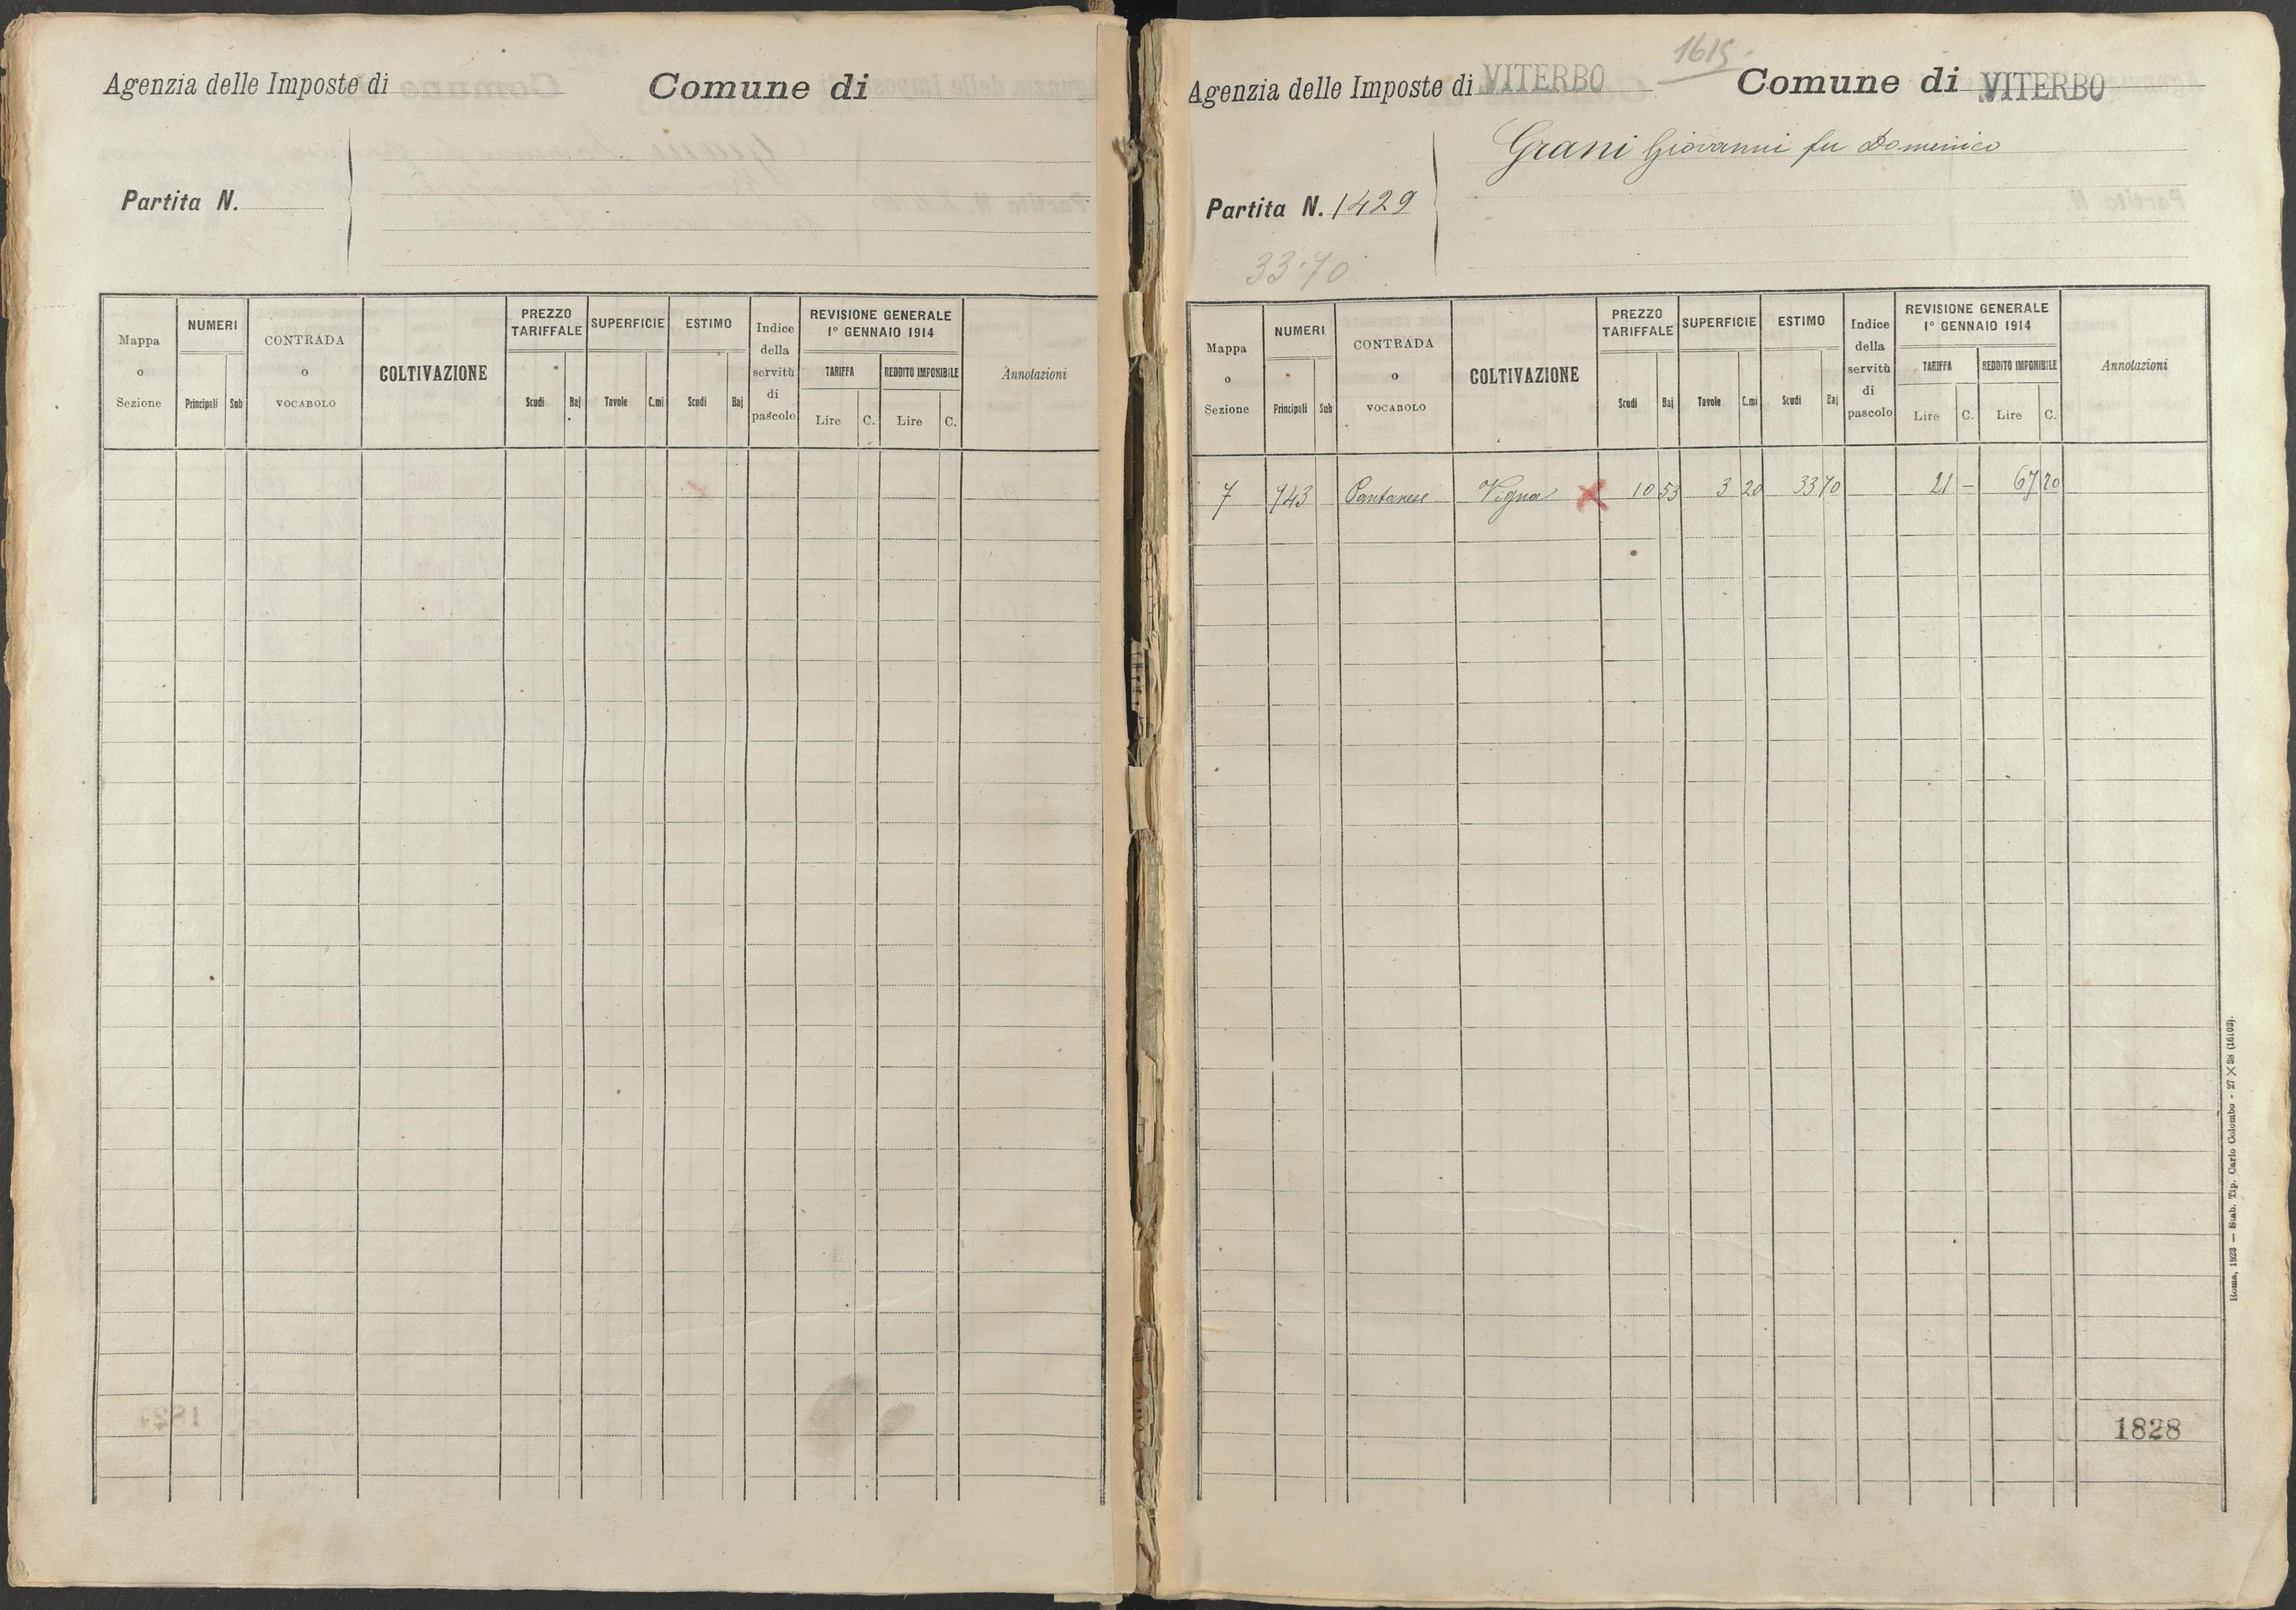 Agenzia delle Imposte di Comune di
Partita N.
Mappa o Sezione NUMERI Principali Sub CONTRADA o VOCABOLO COLTIVAZIONE PREZZO TARIFFALE Scudi Baj SUPERFICIE Tavole C.mi ESTIMO Scudi Baj Indice della servitù di pascolo REVISIONE GENERALE 1º GENNAIO 1914 TARIFFA Lire C. REDDITO IMPONIBILE Lire C. Annotazioni
1615
Agenzia delle Imposte di VITERBO Comune di VITERBO
Grani Giovanni fu Domenico
Partita N. 1429
33.70
Mappa o Sezione NUMERI Principali Sub CONTRADA o VOCABOLO COLTIVAZIONE PREZZO TARIFFALE Scudi Baj SUPERFICIE Tavole C.mi ESTIMO Scudi Baj Indice della servitù di pascolo REVISIONE GENERALE 1º GENNAIO 1914 TARIFFA Lire C. REDDITO IMPONIBILE Lire C. Annotazioni
7 743 Pantanese Vigna 10 53 3 20 33 70 21 – 67 20
1828
Roma, 1923 — Stab. Tip. Carlo Colombo - 27 × 38 (16103).